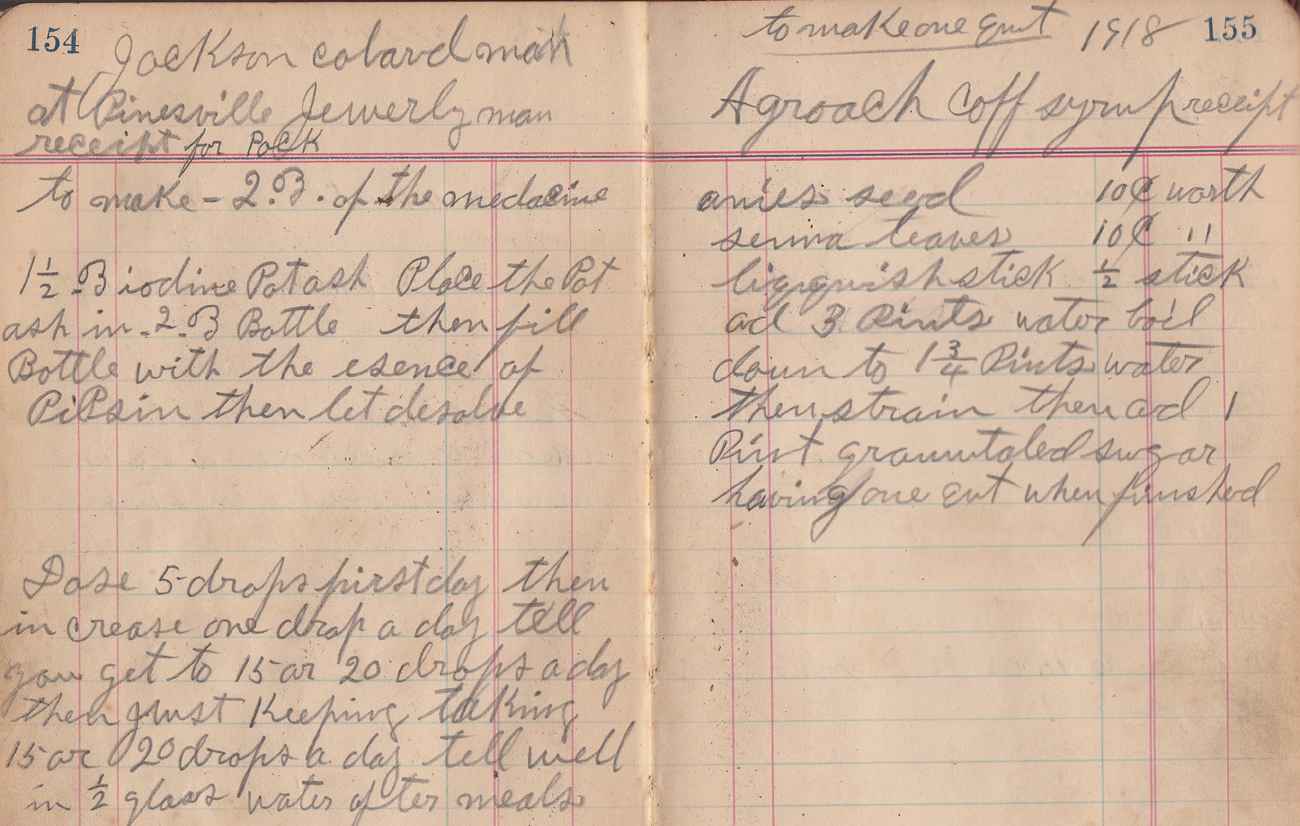 154
Jackson colard man
at Pinesville Jewerly man
receipt for Pock
to make - 2.℥. of the medacine
1½ ℥ iodine Potash Place the Pot
ash in 2 ℥ Bottle then fill
Bottle with the esence of
PiPsin then let desolve
Dose 5 drops first day then
in crease one drop a day tell
you get to 15 or 20 drops a day
then Just Keeping taking
15 or 20 drops a day tell well
in ½ glass water after meals
to make one qut 1918 155
Agroach Coff syrup receipt
anies seed 10¢ worth
senna leaves 10¢ "
liqquish stick ½ stick
ad 3 Pints water boil
down to 1¾ Pints water
then strain then ad 1
Pint granutaled sugar
having one qut when finshed